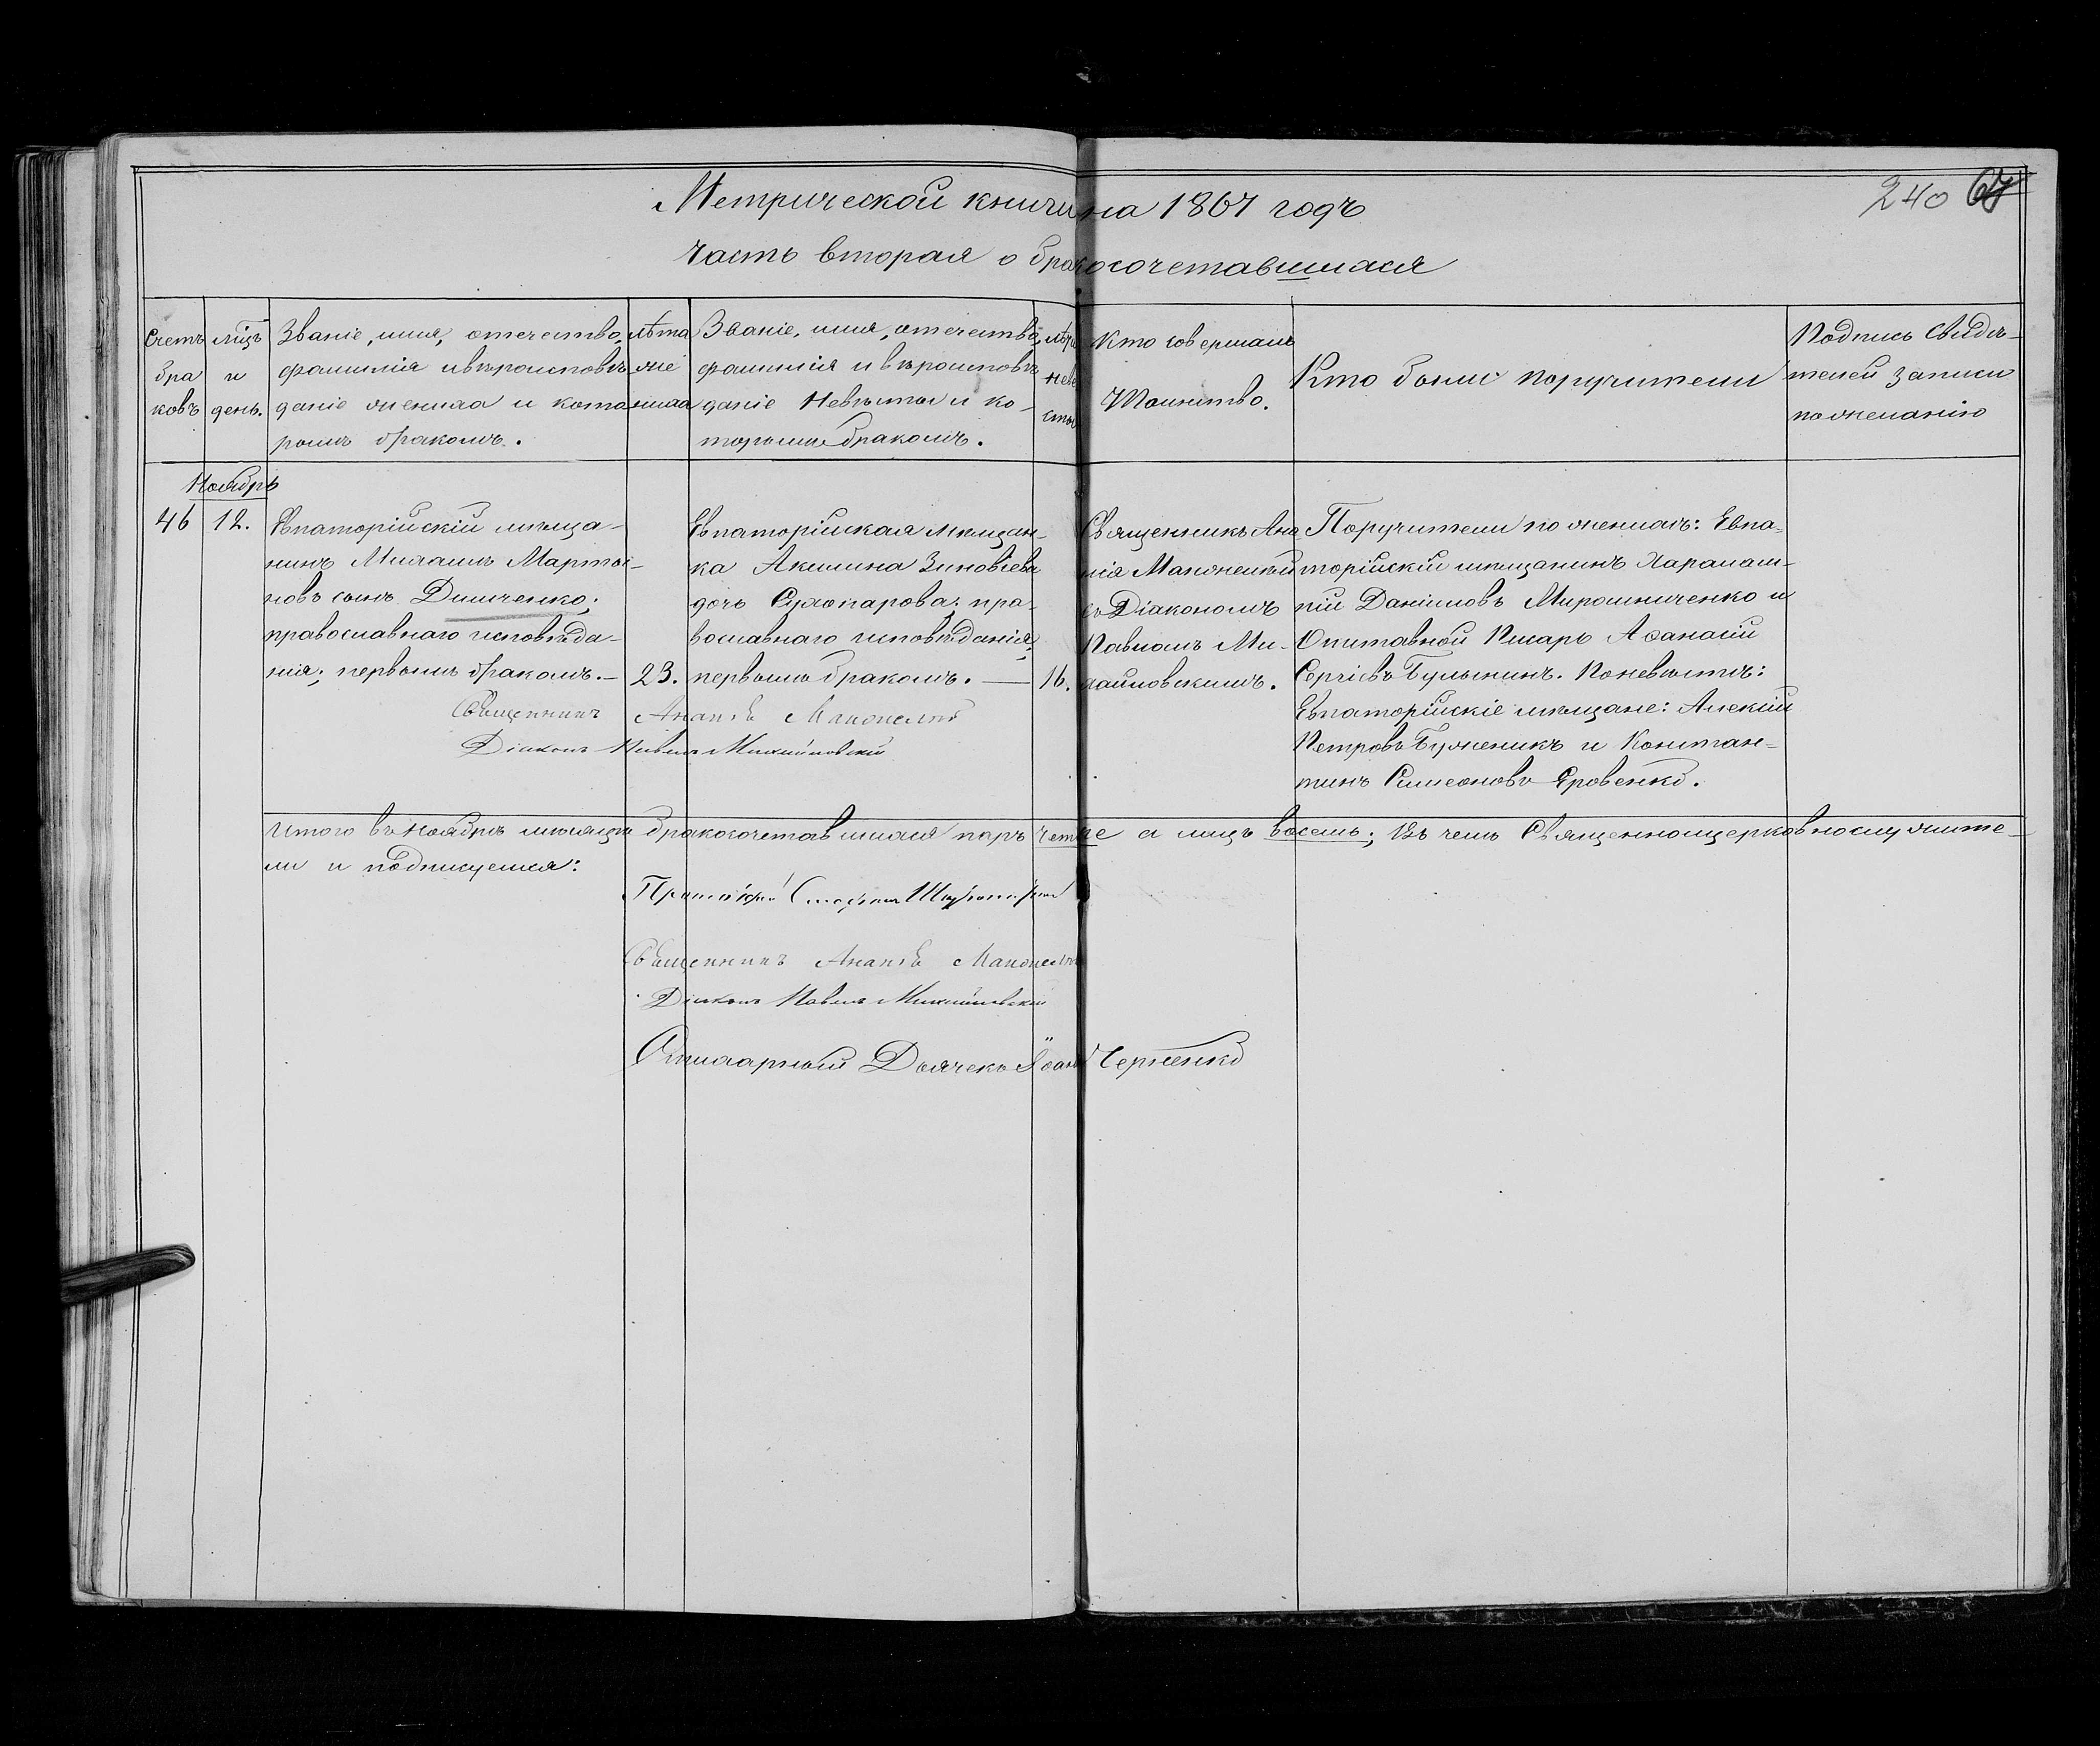 Метрической книги на 1867 годъ
240 67
часть вторая о бракосочетавшихся
Счетъ браковъ
мѣцъ и день.
Званіе, имя, отечество,
фамилія и вѣроисповѣ-
даніе жениха и кото-
рымъ бракомъ.
лѣта
же
ниха
Званіе, имя, отечество,
фамилія и вѣроисповѣ
даніе Невѣсты и ко-
торымъ бракомъ.
лѣта
неве
сты
Кто совершалъ
Таинство.
Кто были поручители
Подпись Свидѣ-
телей записи
по желанію
Ноябрь
46 12.
Евпаторійскій мѣща-
нинъ Михаилъ Марты-
новъ сынъ Димченко;
православнаго исповѣда-
нія; первымъ бракомъ.— 23.
Евпаторійская мѣщан-
ка Акилина Зиновіева
дочь Сухопарова; пра-
вославнаго исповѣданія;
первымъ бракомъ. — 16.
Священникъ Ана
нія Макожецкій
съ Діакономъ
Павломъ Ми-
хайловскимъ.
Поручители по женихѣ: Евпа-
торійскій мѣщанинъ Харалам-
пій Даніиловъ Мирошниченко и
Аѳанасій
Сергіевъ Булыкинъ. По невѣстѣ:
Евпаторійскіе мѣщане: Алексій
Петровъ Буженикъ и Констан-
тинъ Симеоновъ Яровенко.
Священникъ Ананія
Діаконъ Павелъ Михайловскій
Итого въ Ноябрѣ мѣсяцѣ бракосочетавшихся паръ четыре а лицъ восемь; Въ чемъ Священноцерковнослужите-
ли и подписуемся:
Священникъ Ананія
Діаконъ Павелъ Михайловскій
Дьячекъ Іоаннъ Черненко